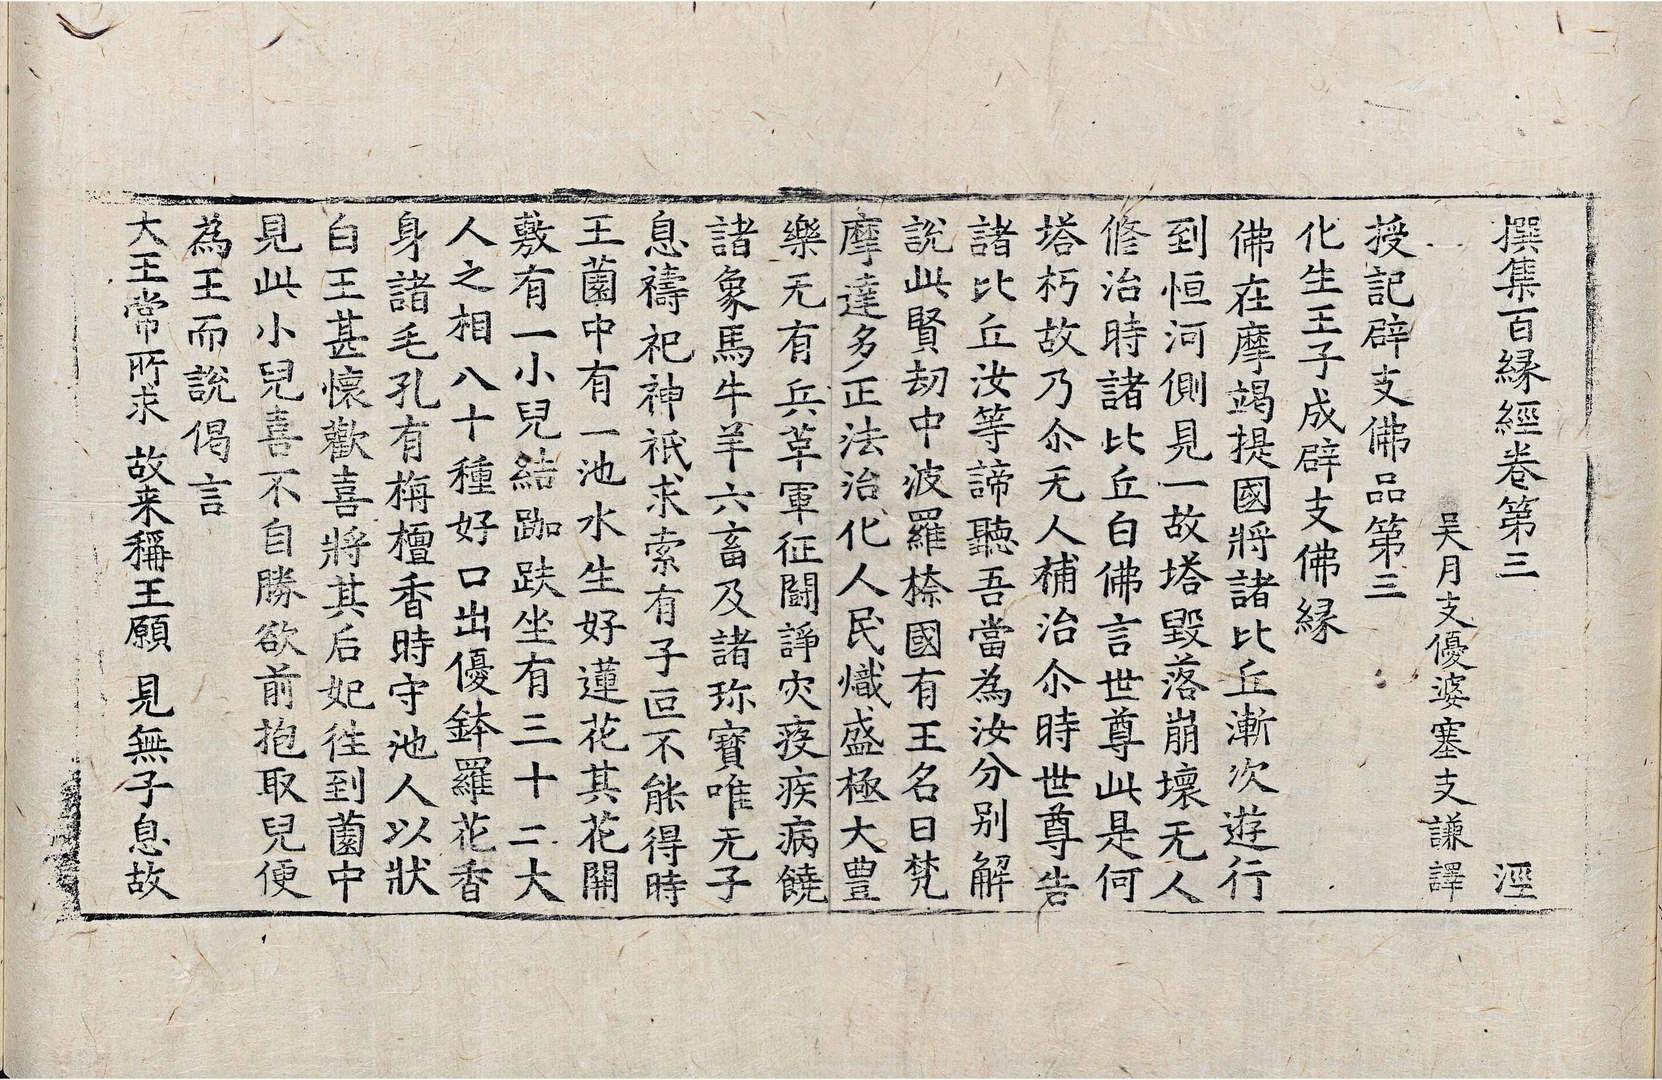 撰集百緣經卷第三 涇
吴月支優婆塞支謙譯
授記辟支佛品第三
化生王子成辟支佛緣
佛在摩竭提國將諸比丘漸次遊行
到恒河側見一故塔毀落崩壞无人
修治時諸比丘白佛言世尊此是何
塔朽故乃尒无人補治尒時世尊告
諸比丘汝等諦聽吾當為汝分别解
說此賢劫中波羅㮈國有王名曰梵
摩達多正法治化人民熾盛極大豊
樂无有兵革軍征鬪諍灾疫疾病饒
諸象馬牛羊六畜及諸珎寳唯无子
息禱祀神祇求索有子叵不能得時
王薗中有一池水生好蓮花其花開
敷有一小兒結跏趺坐有三十二大
人之相八十種好口出優鉢羅花香
身諸毛孔有栴檀香時守池人以狀
白王甚懷歡喜將其后妃往到薗中
見此小兒喜不自勝欲前抱取兒便
為王而說偈言
大王常所求 故来稱王願 見無子息故